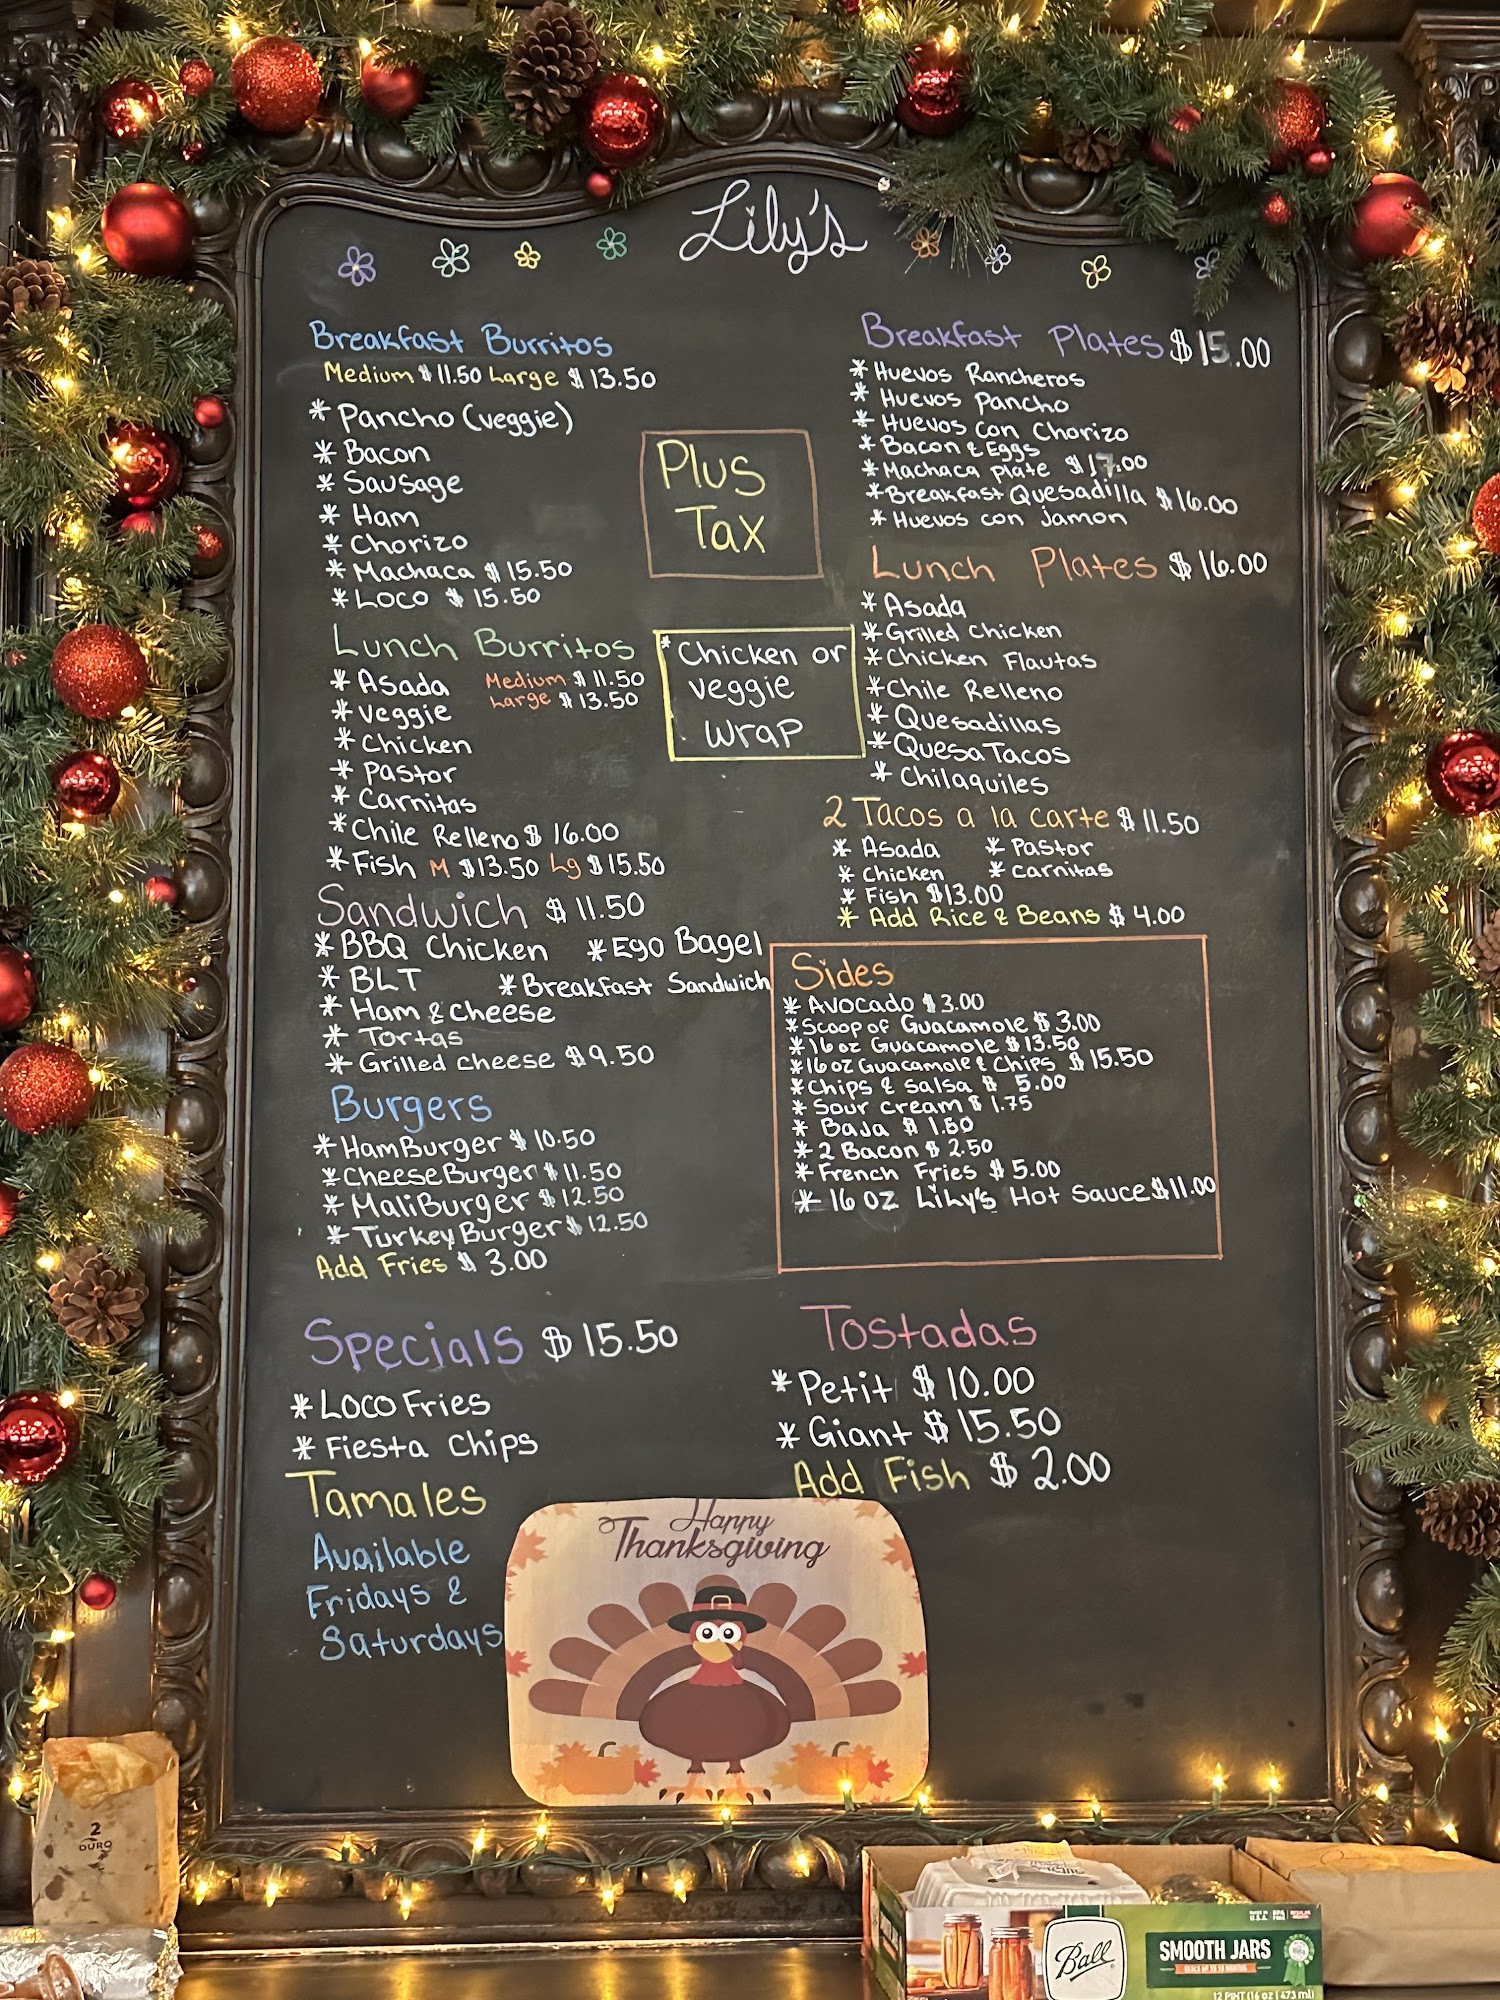 Lily's
Breakfast Burritos
Medium $11.50 Large $13.50
* Pancho (veggie)
* Bacon
* Sausage
* Ham
* Chorizo
* Machaca $15.50
* Loco $15.50
Plus
Tax
Lunch Burritos
Medium $11.50
Large $13.50
* Asada
* Veggie
* Chicken
* Pastor
* Carnitas
* Chile Relleno $16.00
* Fish M $13.50 Lg $15.50
* Chicken or
veggie
wrap
Sandwich $11.50
* BBQ Chicken * Egg Bagel
* BLT * Breakfast Sandwich
* Ham & Cheese
* Tortas
* Grilled Cheese $9.50
Burgers
* HamBurger $10.50
* CheeseBurger $11.50
* MaliBurger $12.50
* TurkeyBurger $12.50
Add Fries $3.00
Specials $15.50
* Loco Fries
* Fiesta Chips
Tamales
Available
Fridays &
Saturdays
Breakfast Plates $15.00
* Huevos Rancheros
* Huevos Pancho
* Huevos con Chorizo
* Bacon & Eggs
* Machaca plate $17.00
* Breakfast Quesadilla $16.00
* Huevos con jamon
Lunch Plates $16.00
* Asada
* Grilled Chicken
* Chicken Flautas
* Chile Relleno
* Quesadillas
* QuesaTacos
* Chilaquiles
2 Tacos a la carte $11.50
* Asada * Pastor
* Chicken * Carnitas
* Fish $13.00
* Add Rice & Beans $4.00
Sides
* Avocado $3.00
* Scoop of Guacamole $3.00
* 16 oz Guacamole $13.50
* 16 oz Guacamole & Chips $15.50
* Chips & Salsa $5.00
* Sour Cream $1.75
* Baja $1.50
* 2 Bacon $2.50
* French Fries $5.00
* 16 oz Lily's Hot Sauce $11.00
Tostadas
* Petit $10.00
* Giant $15.50
Add Fish $2.00
Happy
Thanksgiving
2
DURO
Ball
SMOOTH JARS
MADE IN U.S.A.
12 PINT (16 oz | 473 ml)